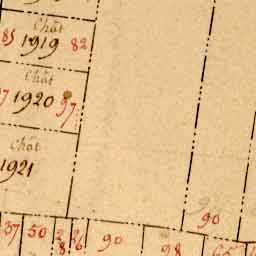 Chât
85 1919 82
Chât
1920 97
Chât
1921
90
37 50 28 26 90 98